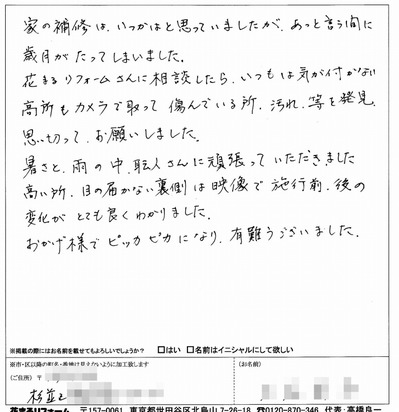 家の補修は、いつかはと思っていましたが、あっと言う間に
歳月がたってしまいました。
花まるリフォームさんに相談したら、いつもは気が付かない
高所もカメラで取って傷んでいる所、汚れ、等を発見、
思い切って、お願いしました。
暑さと、雨の中、職人さんに頑張っていただきました
高い所、目の届かない裏側は映像で施行前、後の
変化がとても良くわかりました。
おかげ様でピッカピカになり、有難うございました。
※掲載の際にはお名前を載せてもよろしいでしょうか? □はい □名前はイニシャルにして欲しい
※市・区以降の町名・番地は見えないように加工致します
(ご住所) 〒
(お名前)
杉並区
花まるリフォーム 〒157-0061 東京都世田谷区北烏山7-26-18 ☎0120-870-346 代表:高橋良一